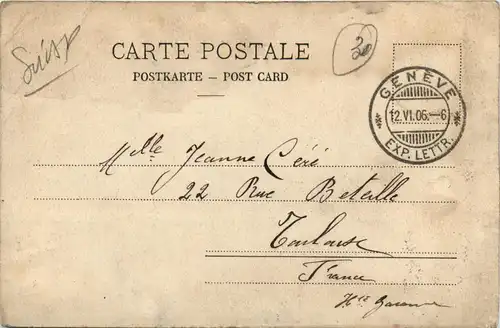 Suisse
30
CARTE POSTALE
POSTKARTE — POST CARD
GENÈVE
12.VI.06.—6
EXP. LETTR.
Mlle Jeanne Céré
22 Rue Bataille
Toulouse
France
Hte Garonne